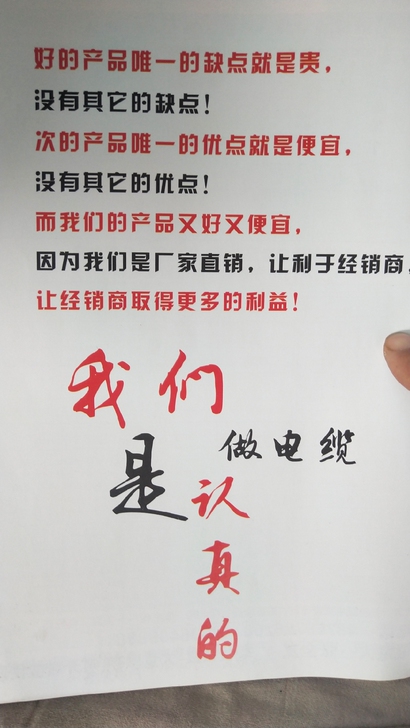 好的产品唯一的缺点就是贵，
没有其它的缺点！
次的产品唯一的优点就是便宜，
没有其它的优点！
而我们的产品又好又便宜，
因为我们是厂家直销，让利于经销商，
让经销商取得更多的利益！
我们
是
做电缆
认
真
的